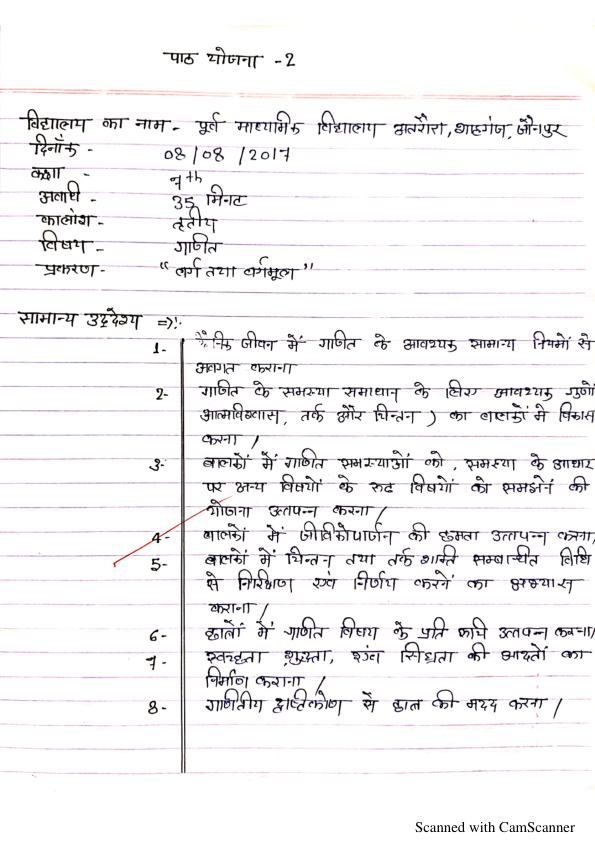 पाठ योजना -2
विद्यालय का नाम - पूर्व माध्यमिक विद्यालय अतरौरा, शाहगंज, जौनपुर
दिनाँक - 08/08/2017
कक्षा - 7th
अवधि - 35 मिनट
कालांश - तृतीय
विषय - गणित
प्रकरण - "वर्ग तथा वर्गमूल"
सामान्य उद्देश्य =>:-
1- जीवन में गणित के आवश्यक सामान्य नियमों से
अवगत कराना
2- गणित के समस्या समाधान के लिए आवश्यक गुणों
आत्मविश्वास, तर्क और चिन्तन ) का बालकों में विकास
करना /
3- बालकों में गणित समस्याओं को, समस्या के आधार
पर अन्य विषयों के विषयों को समझने की
योजना उत्पन्न करना /
4- बालकों में जीविकोपार्जन की क्षमता उत्पन्न करना,
5- बालकों में चिन्तन तथा तर्क शक्ति सम्बन्धित विधि
से निरिक्षण एवं निर्णय करने का अभ्यास
कराना /
6- छात्रों में गणित विषय के प्रति रूचि उत्पन्न करना/
7- स्वच्छता शुद्धता, एवं की आदतों का
निर्माण कराना /
8- गणितीय दृष्टिकोण से छात्र की मदद करना /
Scanned with CamScanner